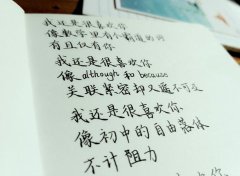 我还是很喜欢你
像数学里有个霸道的词
有且仅有你
我还是很喜欢你
像although和because
关联紧密却又遥不可及
我还是很喜欢你
像初中的自由落体
不计阻力